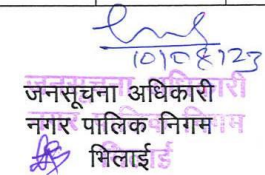 10/08/23
जनसूचना अधिकारी
नगर पालिक निगम
भिलाई